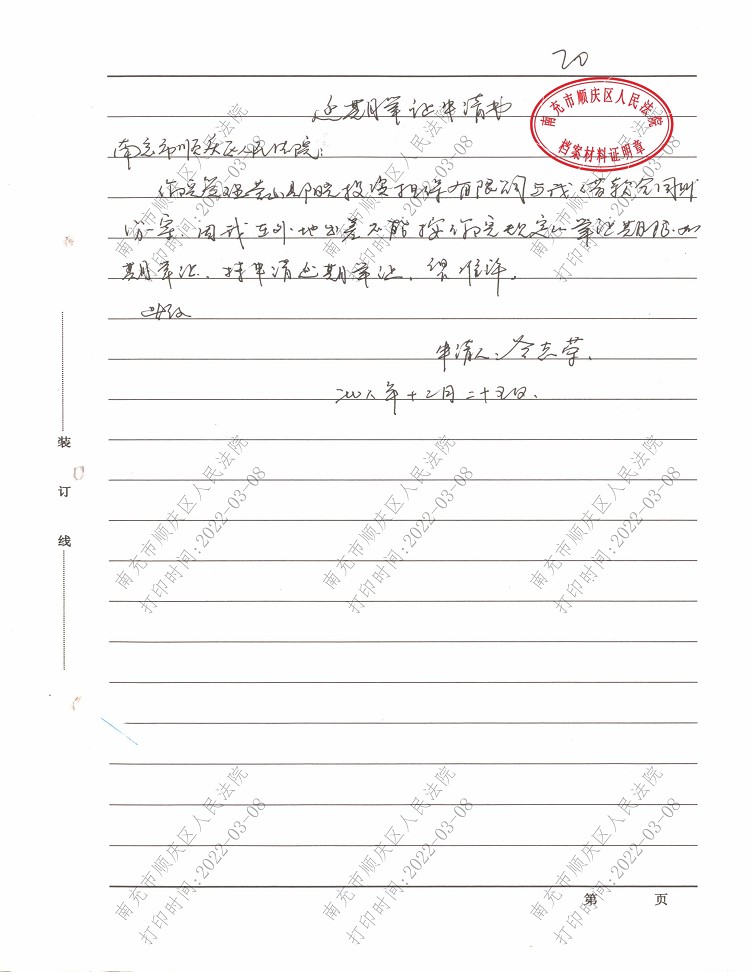 20
延期举证申请书
南充市顺庆区人民法院
档案材料证明章
南充市顺庆区人民法院:
你院受理营山县 投资担保有限公司与我借款合同纠
纷一案,因我在外地出差不能按你院规定的举证期限如
期举证,特申请延期举证,望准许。
此致
申请人:
二00八年十二月二十五日.
装
订
线
南充市顺庆区人民法院
打印时间:2022-03-08
南充市顺庆区人民法院
打印时间:2022-03-08
南充市顺庆区人民法院
打印时间:2022-03-08
南充市顺庆区人民法院
打印时间:2022-03-08
南充市顺庆区人民法院
打印时间:2022-03-08
南充市顺庆区人民法院
打印时间:2022-03-08
南充市顺庆区人民法院
打印时间:2022-03-08
南充市顺庆区人民法院
打印时间:2022-03-08
南充市顺庆区人民法院
打印时间:2022-03-08
第 页